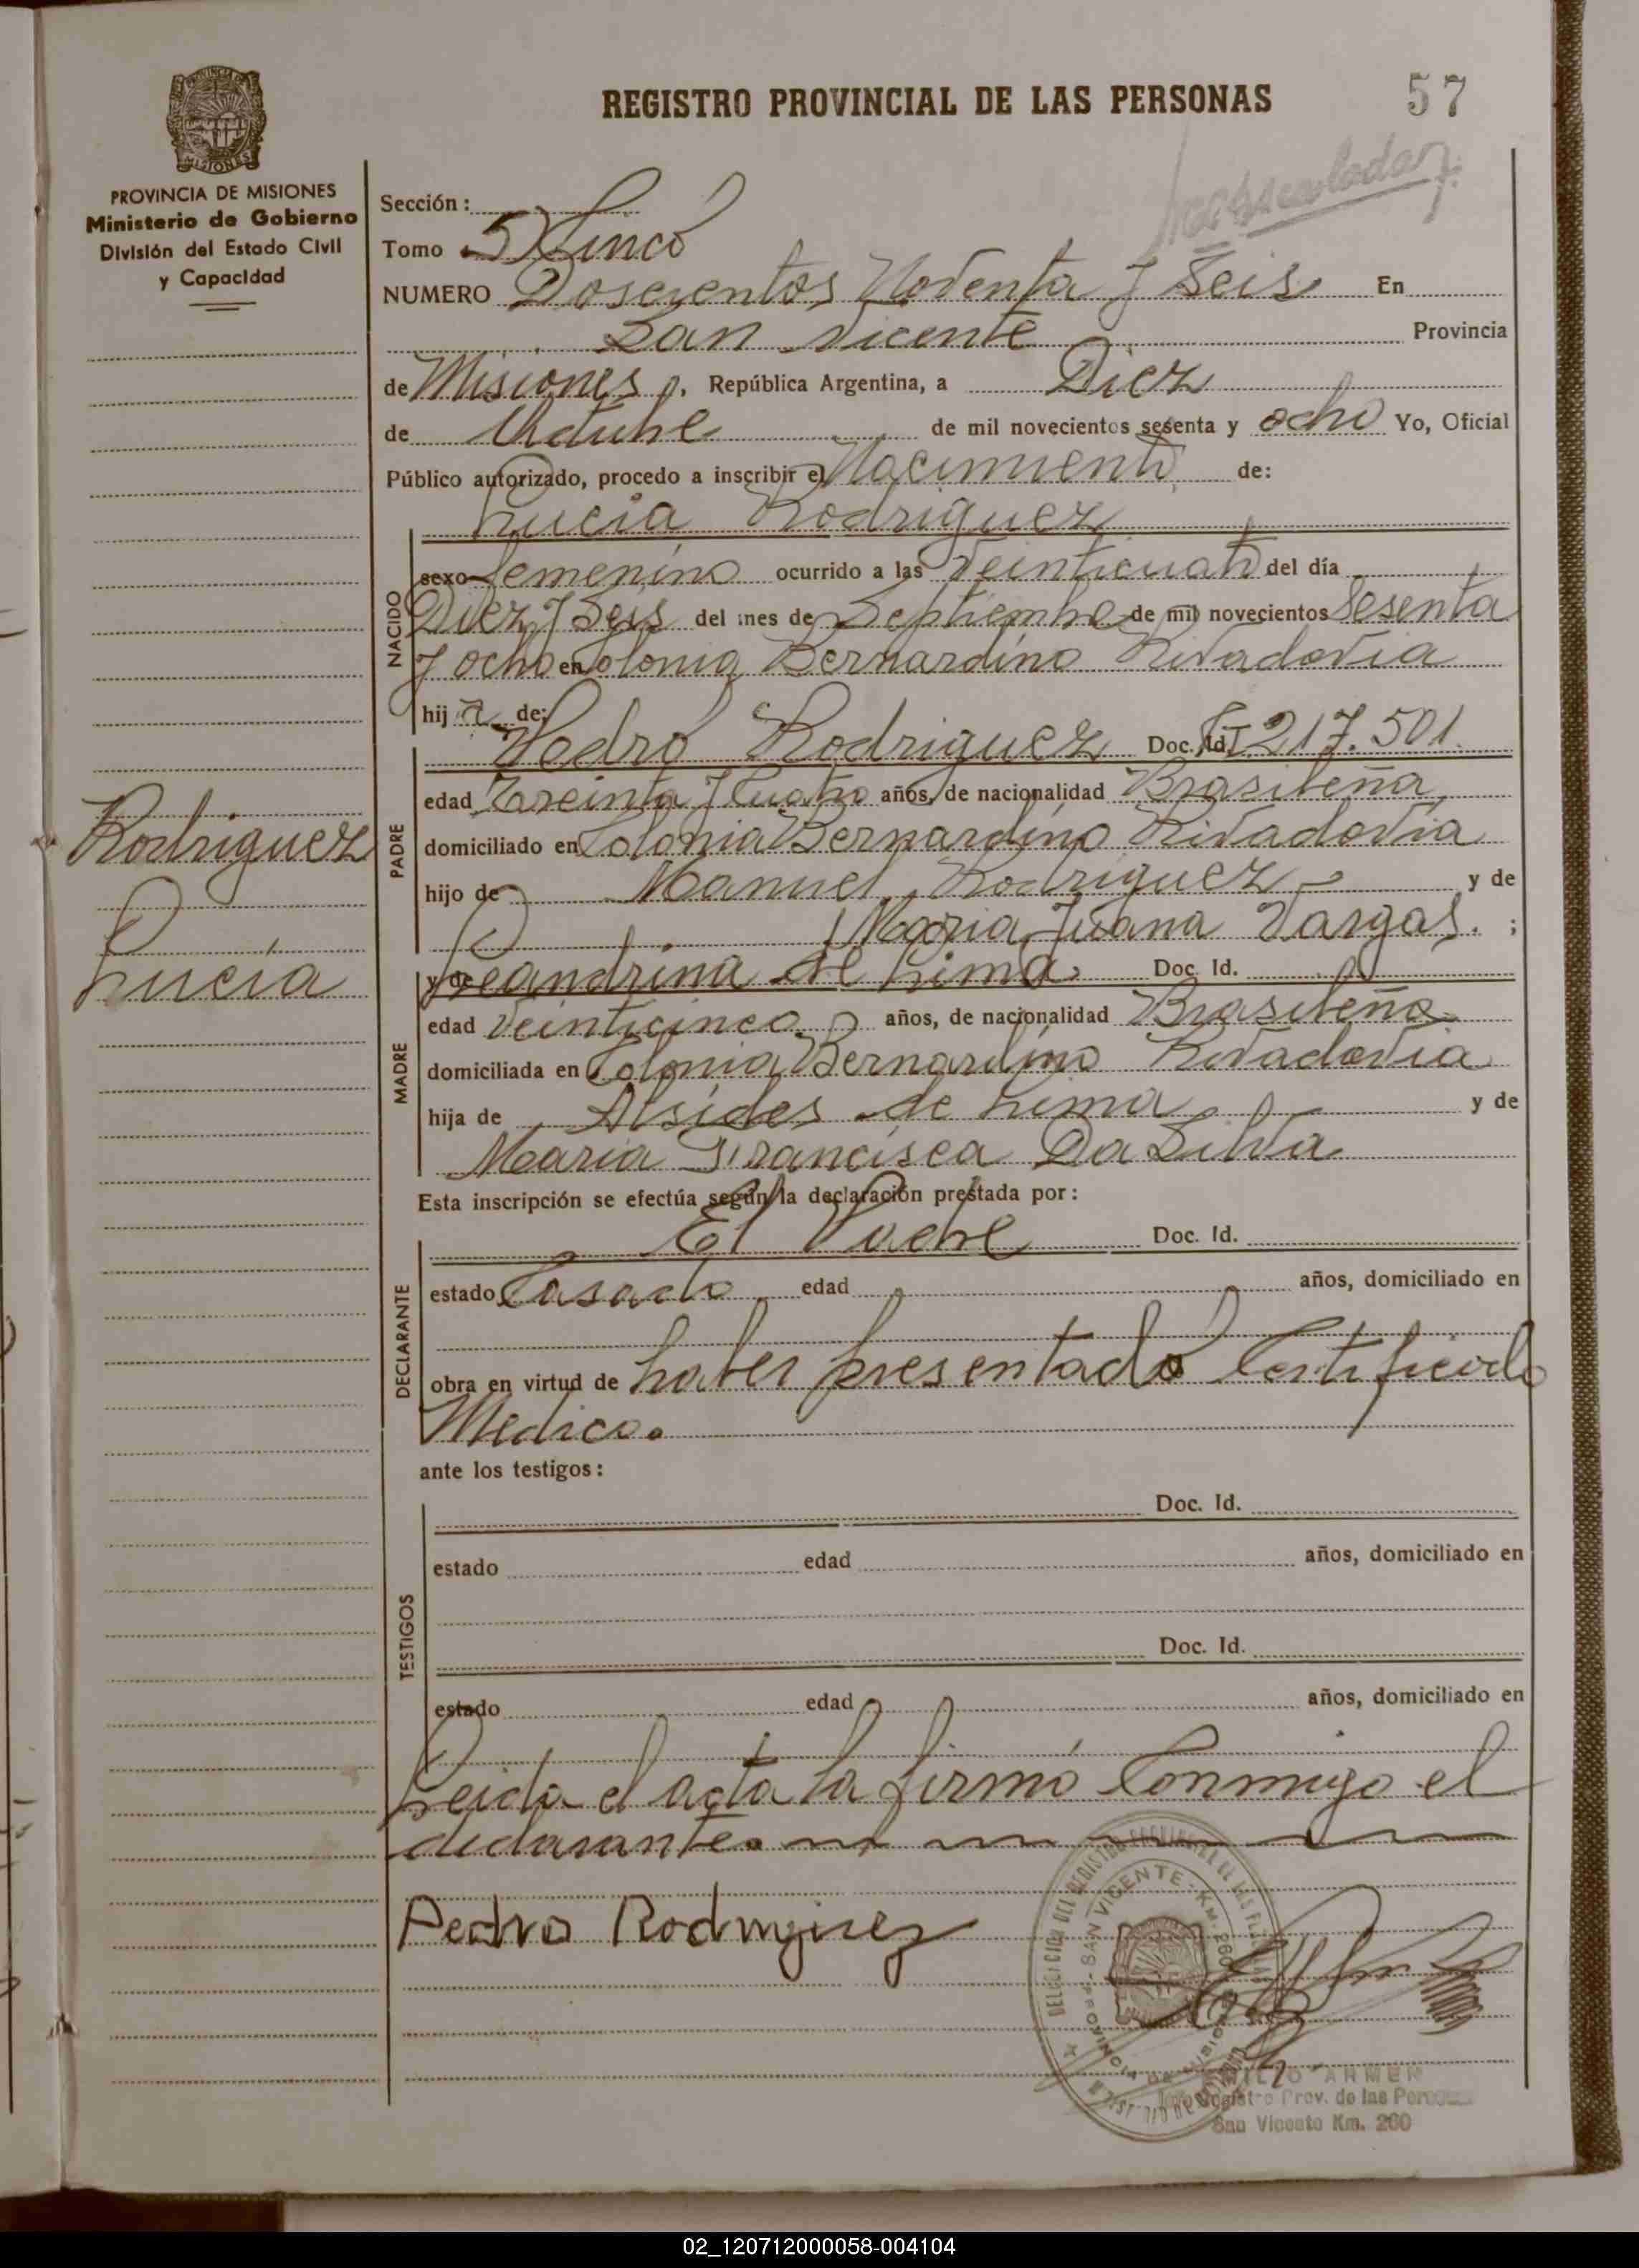 REGISTRO PROVINCIAL DE LAS PERSONAS
57
PROVINCIA DE MISIONES
Ministerio de Gobierno
División del Estado Civil
y Capacidad
Sección:
Tomo 5) Cinco
NUMERO Doscientos Noventa y Seis En
San Vicente Provincia
de Misiones, República Argentina, a Diez
de Octubre de mil novecientos sesenta y ocho Yo, Oficial
Público autorizado, procedo a inscribir el Nacimiento de:
Lucia Rodriguez
NACIDO
sexo femenino ocurrido a las Veinticuatro del día
Diez y Seis del mes de Septiembre de mil novecientos Sesenta
y ocho en Colonia Bernardino Rivadavia
hija de:
PADRE
Pedro Rodriguez Doc. Id. 217.501
edad Treinta y Cuatro años, de nacionalidad Brasileña
domiciliado en Colonia Bernardino Rivadavia
hijo de Manuel Rodriguez y de
Maria Juana Vargas. ;
Rodriguez
Lucia
MADRE
y de Leandrina de Lima Doc. Id.
edad Veinticinco años, de nacionalidad Brasileña
domiciliada en Colonia Bernardino Rivadavia
hija de Alsides de Lima y de
Maria Francisca Da Silva
Esta inscripción se efectúa según la declaración prestada por:
DECLARANTE
El Padre Doc. Id.
estado Casado edad años, domiciliado en
obra en virtud de haber presentado Certificado
Medico.
ante los testigos:
TESTIGOS
Doc. Id.
estado edad años, domiciliado en
Doc. Id.
estado edad años, domiciliado en
Leida el acta la firmó Conmigo el
declarante.
Pedro Rodriguez
SAN VICENTE - KM. 260
Registro Prov. de las Personas
San Vicente Km. 260
02_120712000058-004104